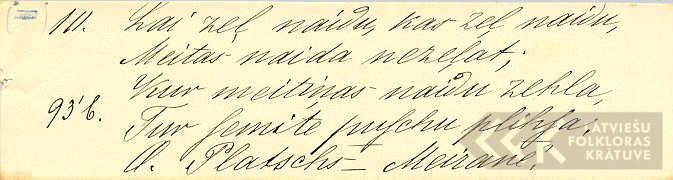 111. Lai zeļ naidu, kas zeļ naidu,
Meitas naida nezeļat;
Kur meitiņas naidu zehla,
93'6. Tur semite puſchu plihſa.
O. Platschs – Meirane.
LATVIEŠU
FOLKLORAS
KRĀTUVE